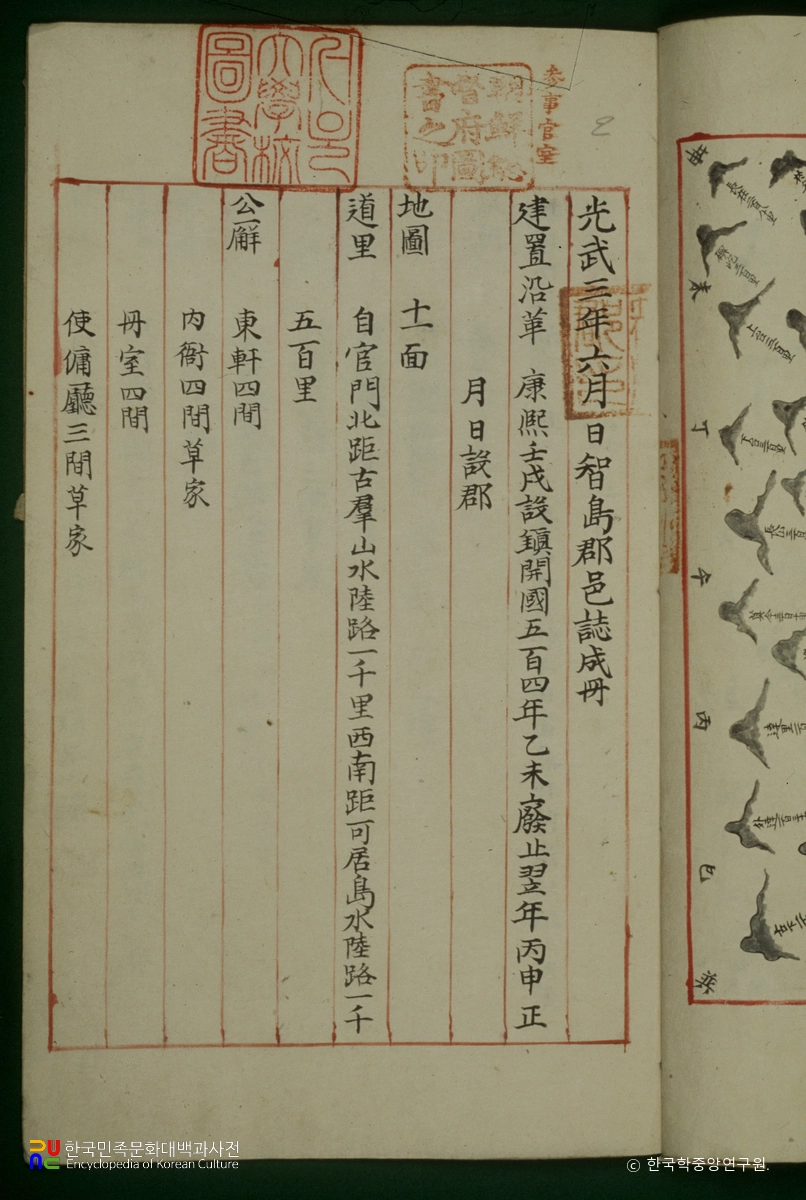 參事官室
朝鮮總督府圖書之印
大學校圖書
光武三年六月 日智島郡邑誌成冊
建置沿革 康熙壬戌設鎭開國五百四年乙未廢止翌年丙申正
月日設郡
地圖 十一面
道里 自官門北距古羣山水陸路一千里西南距可居島水陸路一千
五百里
公廨 東軒四間
內衙四間草家
冊室四間
使傭廳三間草家
未
丁
午
丙
巳
한국민족문화대백과사전
Encyclopedia of Korean Culture
© 한국학중앙연구원.